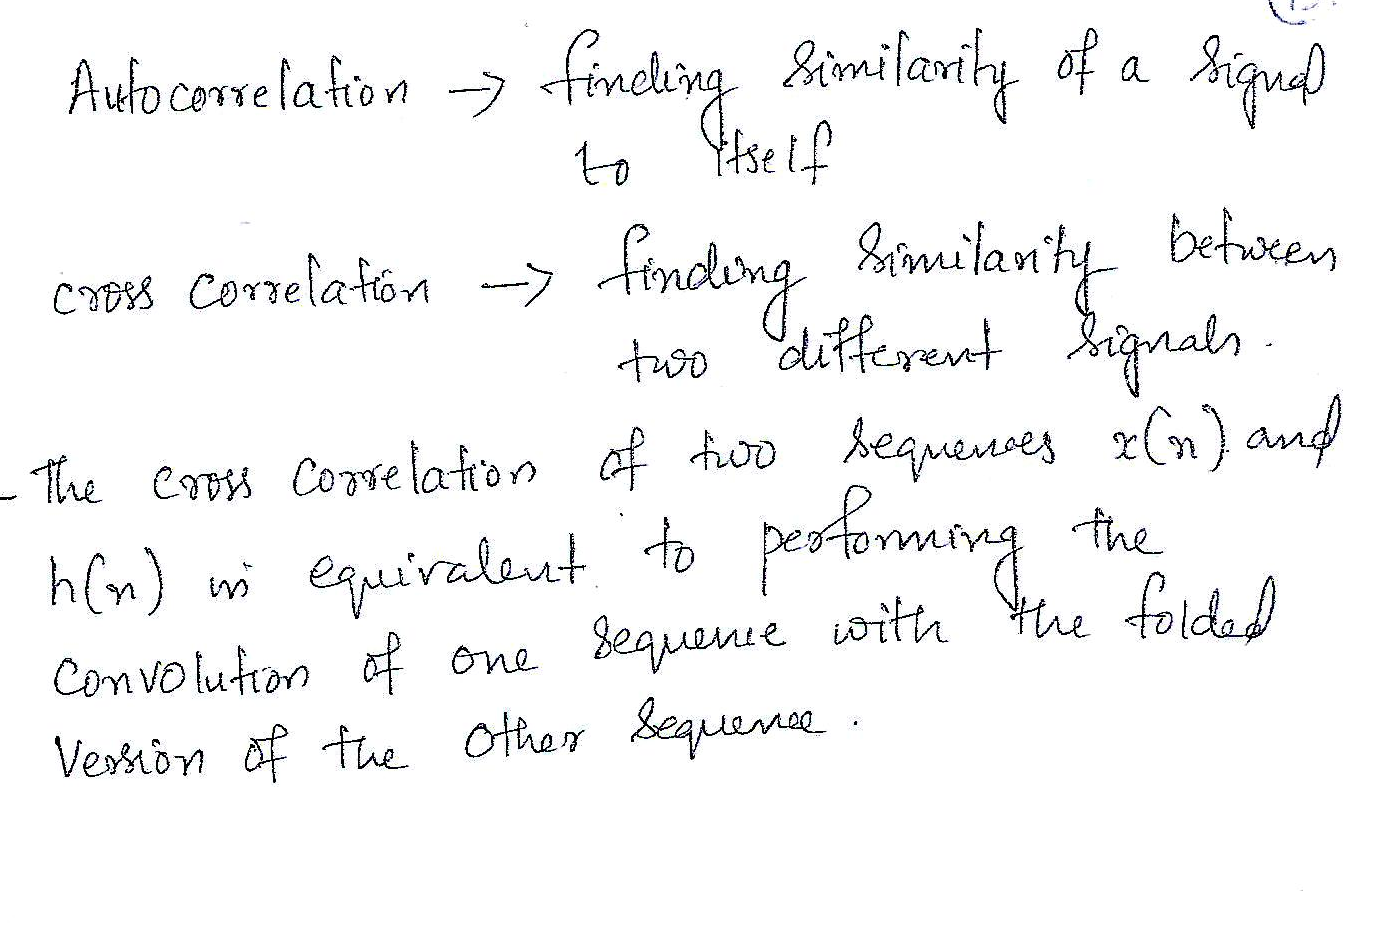 Autocorrelation → finding similarity of a signal
to itself
cross correlation → finding similarity between
two different signals.
- The cross correlation of two sequences x(n) and
h(n) is equivalent to performing the
convolution of one sequence with the folded
version of the other sequence.